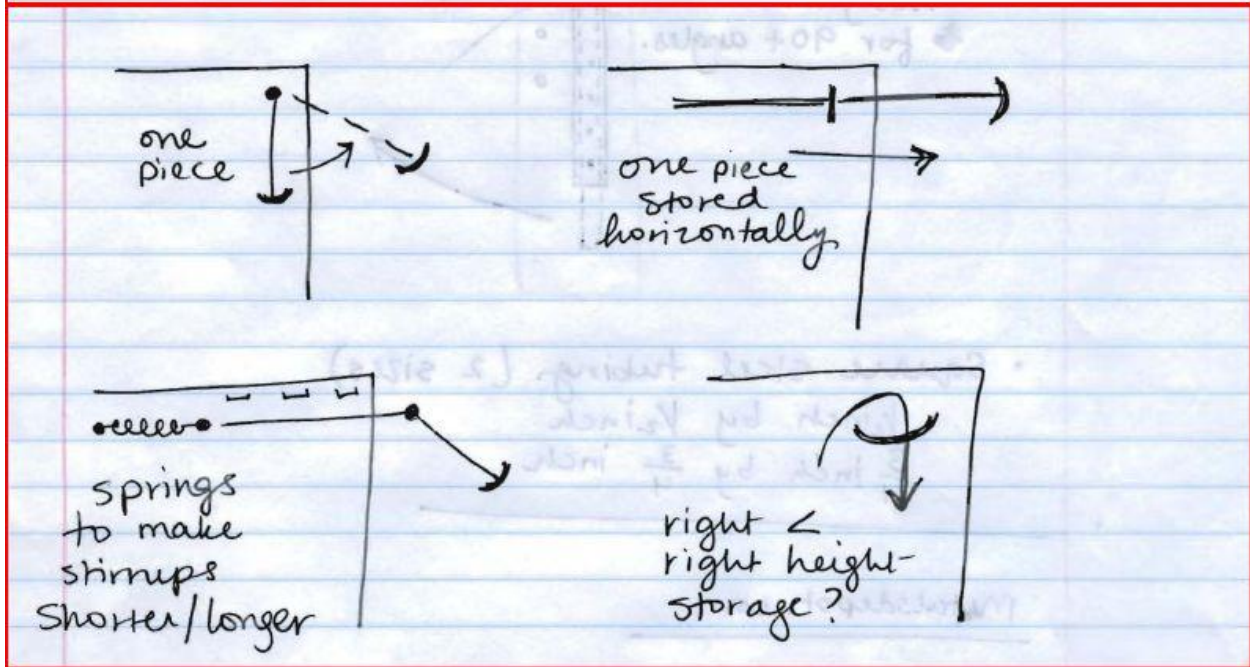 one
piece
one piece
stored
horizontally
springs
to make
stirrups
shorter/longer
right <
right height-
storage?